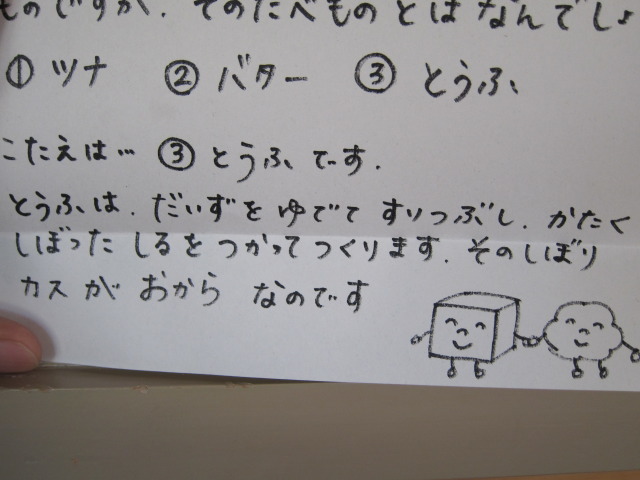 ものですが、そのたべものとはなんでしょ
① ツナ ② バター ③ とうふ、
こたえは… ③ とうふです.
とうふは、だいずをゆでてすりつぶし、かたく
しぼったしるをつかってつくります. そのしぼり
カスが おから なのです